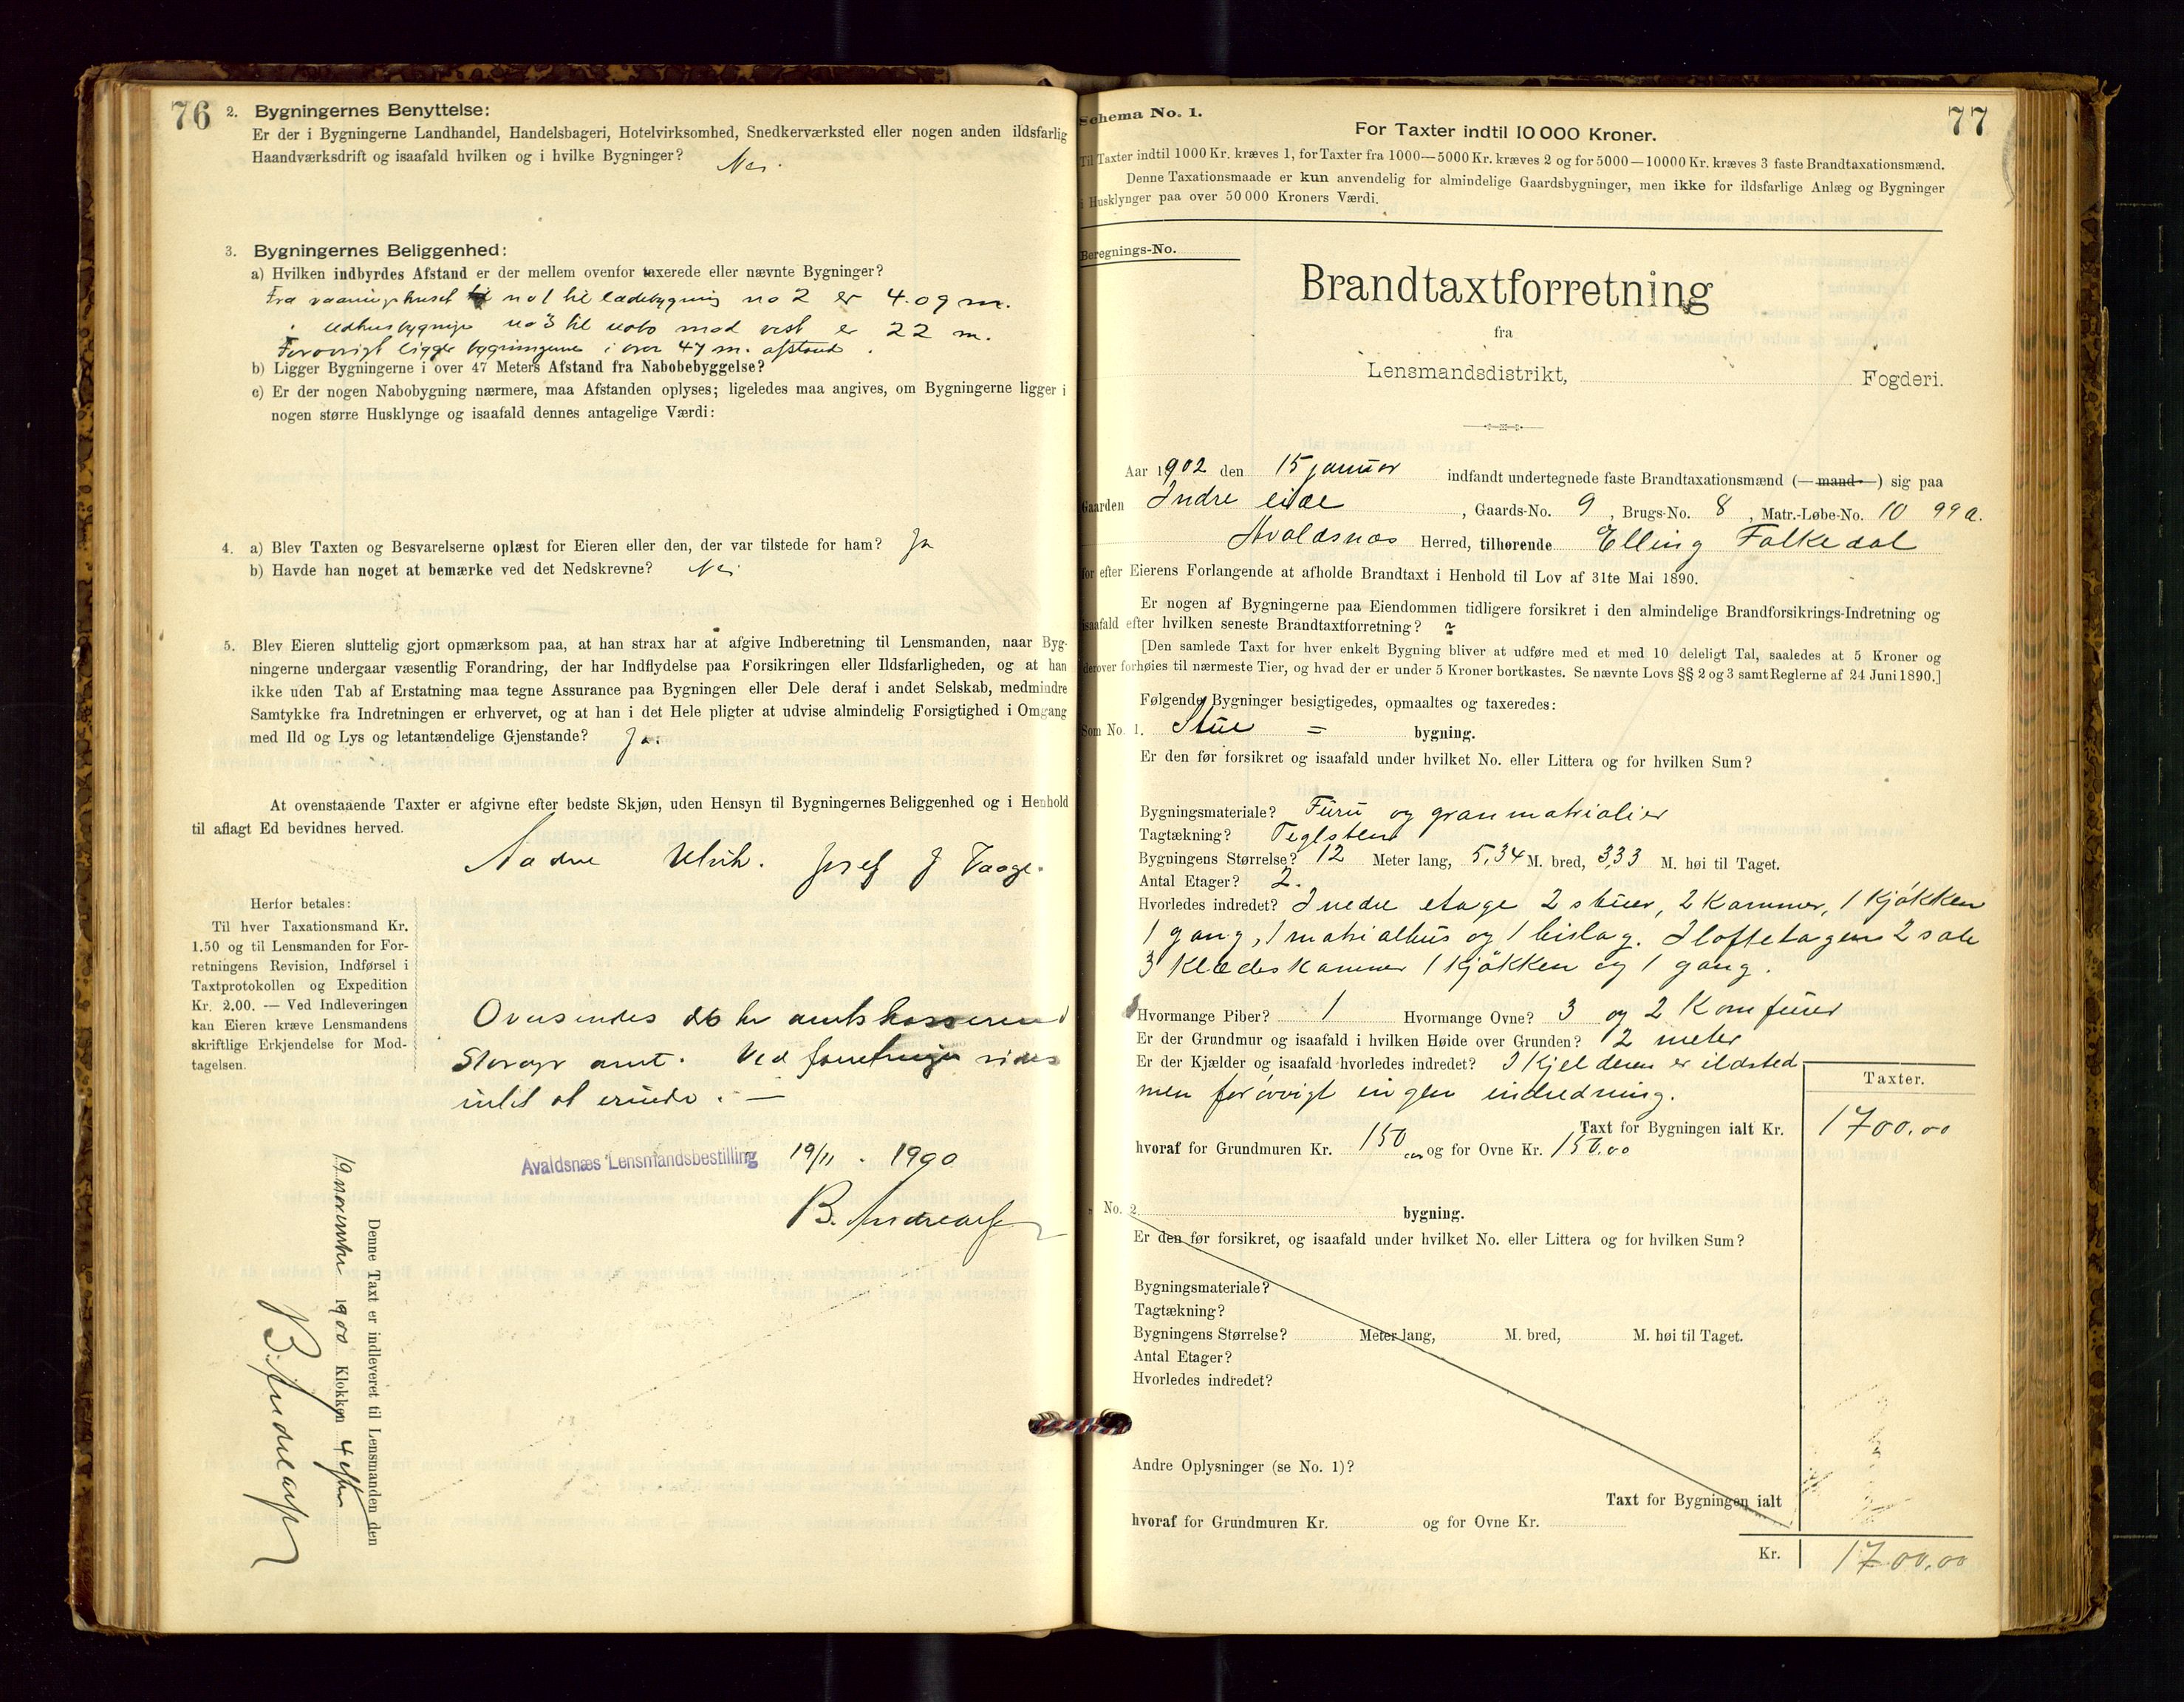 76
2. Bygningernes Benyttelse:
Er der i Bygningerne Landhandel, Handelsbageri, Hotelvirksomhed, Snedkerværksted eller nogen anden ildsfarlig
Haandværksdrift og isaafald hvilken og i hvilke Bygninger? Nei.
3. Bygningernes Beliggenhed:
a) Hvilken indbyrdes Afstand er der mellem ovenfor taxerede eller nævnte Bygninger?
Fra vaaningshuset no 1 til ladebygning no 2 er 4.09 m.
" Udhusbygnings no 3 til nabo mod vest er 22 m.
Forøvrigt ligger bygningerne i over 47 m. afstand.
b) Ligger Bygningerne i over 47 Meters Afstand fra Nabobebyggelse?
c) Er der nogen Nabobygning nærmere, maa Afstanden oplyses; ligeledes maa angives, om Bygningerne ligger i
nogen større Husklynge og isaafald dennes antagelige Værdi:
4. a) Blev Taxten og Besvarelserne oplæst for Eieren eller den, der var tilstede for ham? Ja
b) Havde han noget at bemærke ved det Nedskrevne? Nei
5. Blev Eieren sluttelig gjort opmærksom paa, at han strax har at afgive Indberetning til Lensmanden, naar Byg-
ningerne undergaar væsentlig Forandring, der har Indflydelse paa Forsikringen eller Ildsfarligheden, og at han
ikke uden Tab af Erstatning maa tegne Assurance paa Bygningen eller Dele deraf i andet Selskab, medmindre
Samtykke fra Indretningen er erhvervet, og at han i det Hele pligter at udvise almindelig Forsigtighed i Omgang
med Ild og Lys og letantændelige Gjenstande? Ja.
At ovenstaaende Taxter er afgivne efter bedste Skjøn, uden Hensyn til Bygningernes Beliggenhed og i Henhold
til aflagt Ed bevidnes herved.
Utvik. Josef J Vaage.
Herfor betales:
Til hver Taxationsmand Kr.
1.50 og til Lensmanden for For-
retningens Revision, Indførsel i
Taxtprotokollen og Expedition
Kr. 2.00. — Ved Indleveringen
kan Eieren kræve Lensmandens
skriftlige Erkjendelse for Mod-
tagelsen.
Oversendes hr amtskassereren i
Stavgr amt. Ved forretningen vides
intet at erindre. —
Avaldsnæs Lensmandsbestilling 19/11 - 1900
B. Andreassen
Denne Taxt er indleveret til Lensmanden den
19 november 1900 Klokken 4 efterm
B. Andreassen
77
Schema No. 1.
For Taxter indtil 10 000 Kroner.
Til Taxter indtil 1000 Kr. kræves 1, for Taxter fra 1000—5000 Kr. kræves 2 og for 5000—10000 Kr. kræves 3 faste Brandtaxationsmænd.
Denne Taxationsmaade er kun anvendelig for almindelige Gaardsbygninger, men ikke for ildsfarlige Anlæg og Bygninger
i Husklynger paa over 50 000 Kroners Værdi.
Beregnings-No.
Brandtaxtforretning
fra
Lensmandsdistrikt, Fogderi.
Aar 1902 den 15 januar indfandt undertegnede faste Brandtaxationsmænd (—mand—) sig paa
Gaarden Indre eide, Gaards-No. 9, Brugs-No. 8, Matr.-Løbe-No. 10 99 a.
Avaldsnæs Herred, tilhørende Elling Falkedal
for efter Eierens Forlangende at afholde Brandtaxt i Henhold til Lov af 31te Mai 1890.
Er nogen af Bygningerne paa Eiendommen tidligere forsikret i den almindelige Brandforsikrings-Indretning og
isaafald efter hvilken seneste Brandtaxtforretning?
[Den samlede Taxt for hver enkelt Bygning bliver at udføre med et med 10 deleligt Tal, saaledes at 5 Kroner og
derover forhøies til nærmeste Tier, og hvad der er under 5 Kroner bortkastes. Se nævnte Lovs §§ 2 og 3 samt Reglerne af 24 Juni 1890.]
Følgende Bygninger besigtigedes, opmaaltes og taxeredes:
Som No. 1. Stue = bygning.
Er den før forsikret og isaafald under hvilket No. eller Littera og for hvilken Sum?
Bygningsmateriale? Furu og granmatrialier
Tagtækning? Teglsten
Bygningens Størrelse? 12 Meter lang, 5,34 M. bred, 3,33 M. høi til Taget.
Antal Etager? 2.
Hvorledes indredet? I nedre etage 2 stuer, 2 Kammer, 1 Kjøkken
1 gang, 1 matrialhus og 1 bislag. I loftetagen 2 sale
3 Klædeskammer 1 Kjøkken og 1 gang.
Hvormange Piber? 1 Hvormange Ovne? 3 og 2 Komfurer
Er der Grundmur og isaafald i hvilken Høide over Grunden? 2 meter
Er der Kjælder og isaafald hvorledes indredet? I Kjelderen er ildsted
men forøvrigt ingen indredning.
Taxter.
Taxt for Bygningen ialt Kr. 1700.00
hvoraf for Grundmuren Kr. 150 og for Ovne Kr. 150.00
" No. 2. bygning.
Er den før forsikret, og isaafald under hvilket No. eller Littera og for hvilken Sum?
Bygningsmateriale?
Tagtækning?
Bygningens Størrelse? Meter lang, M. bred, M. høi til Taget.
Antal Etager?
Hvorledes indredet?
Andre Oplysninger (se No. 1)?
Taxt for Bygningen ialt
hvoraf for Grundmuren Kr. og for Ovne Kr.
Kr. 1700.00